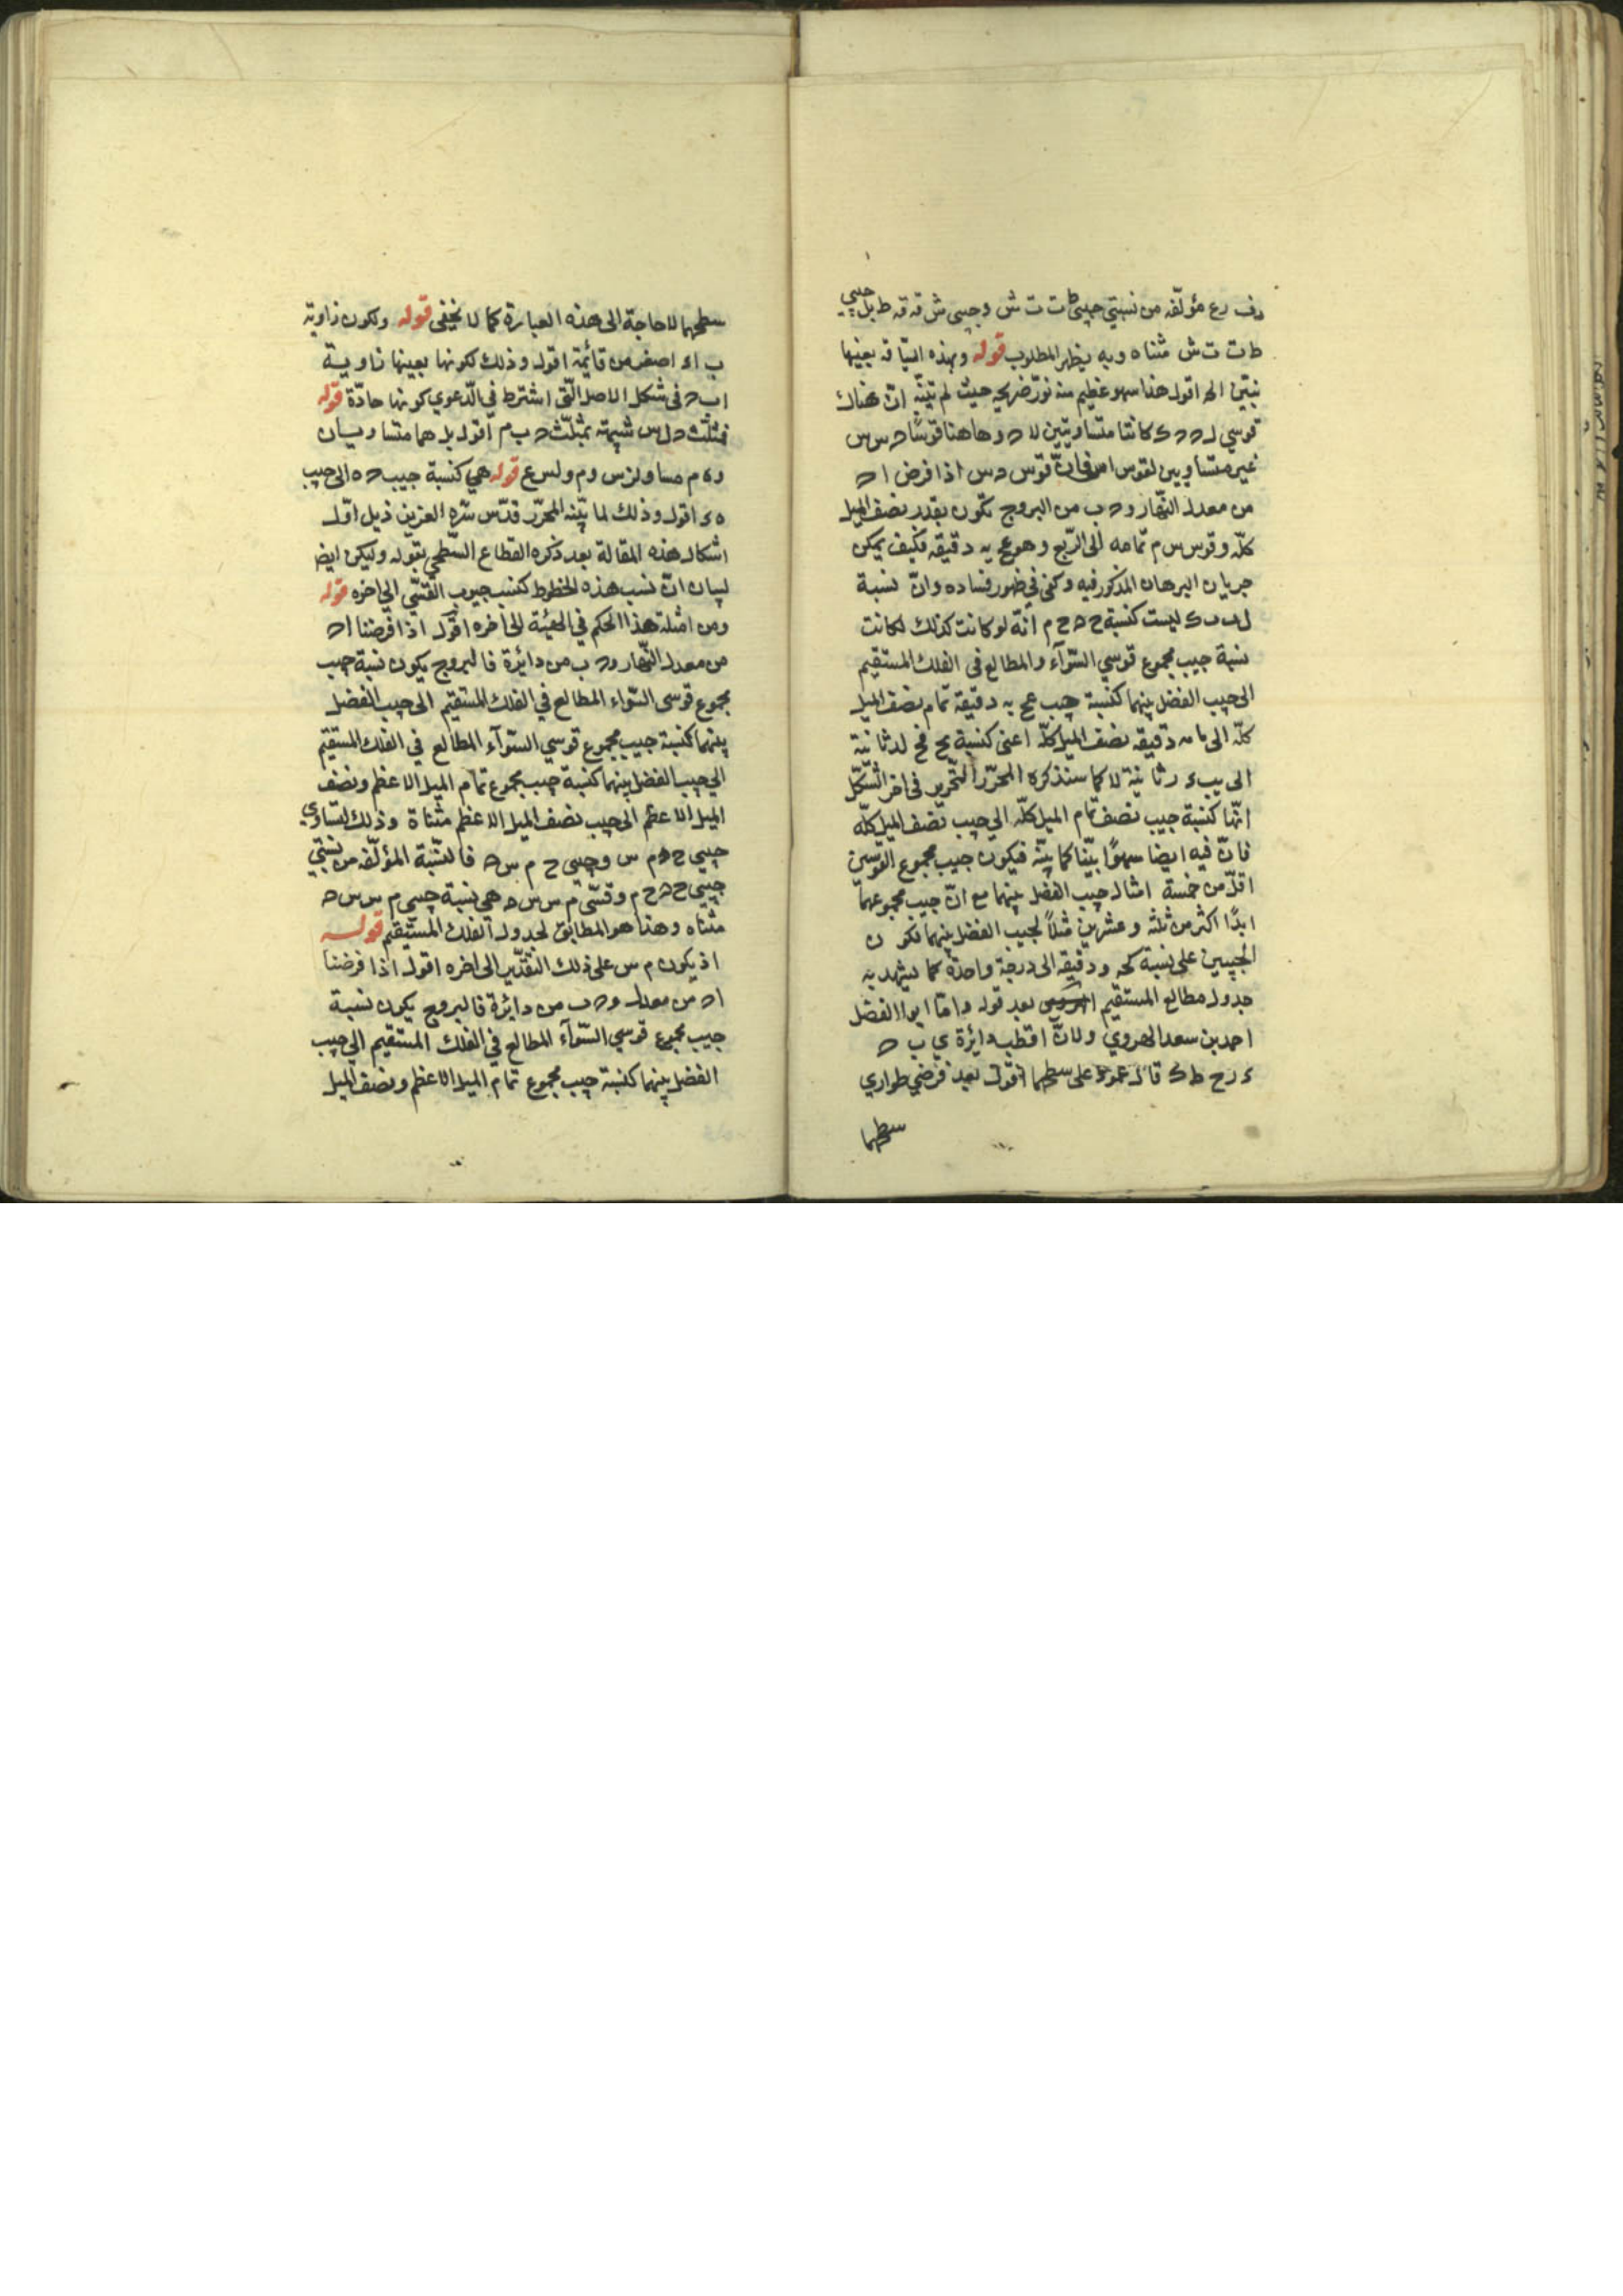 ف رع مؤلّفه من نسبتي جيبي ط ت ت ش وجيبي ش قه قه ط بل جيبي
ط ت ت ش مثناه وبه يظهر المطلوب قوله وبهذه البيان بعينها
نبيّن اله اقول هذا سهو عظيم منه نوّر ضريحه حيث لم يتبيّن انّ هناك
قوسي كانتا متساويتين لا ه وهاهنا قوسا ه س س
غير متساويين لقوس فانّ قوس ه س اذا فرض ا ه
من معدل النّهار و ه ب من البروج تكون بقدر نصف الميل
كلّه وقوس س م تمامه الى الرّبع وهو عح يه دقيقه فكيف يمكن
جريان البرهان المذكور فيه وكفى في ظهور فساده وانّ نسبة
ليست كنسبة ح ه ح م انّه لو كانت كذلك لكانت
نسبة جيب مجموع قوسي السّوآء والمطالع في الفلك المستقيم
الى جيب الفضل بينهما كنسبة جيب عح يه دقيقة تمام نصف الميل
كلّه الى دقيقه نصف الميل كلّه اعنى كنسبة نح لد ثانية
الى يب ثانية لا كما سنذكره المحرّر التّحرير في اخر الشّكل
انّها كنسبة جيب نصف تمام الميل كلّه الى جيب نصف الميل كلّه
فانّ فيه ايضا سهوًا بيّنا كما بيّنه فيكون جيب مجموع القوسين
اقلّ من خمسة امثال جيب الفضل بينهما مع انّ جيب مجموعهما
ابدًا اكثر من ثلثة وعشرين مثلًا لجيب الفضل بينهما فكون
الجيبين على نسبة كحه ودقيقه الى درجة واحدة كما يشهد به
جدول مطالع المستقيم بعد قوله وامّا ابو الفضل
احمد بن سعد الهروي ولانّ اقطب دائرة ي ب ه
ء ر ح ط ك قائل عمود على سطحها اقول بعد فرضي طواري
سطحها
سطحهما لا حاجة الى هذه العبارة كما لا يخفى قوله ولكون زاوية
ب اء اصغر من قائمة اقول وذلك لكونها بعينها زاوية
اب ه فى شكل الاصل الّتى اشترط في الدّعوي كونها حادّة قوله
فمثلّث ه ل س شبيهة بمثلّث ه ب م اقول بل هما متساويان
و ه م مساو لزس و م ولس ع قوله هي كنسبة جيب ه ه الى جيب
ه ء اقول وذلك لما بيّنه المحرّر قدّس سرّه العزيز ذيل اوّل
اشكال هذه المقالة بعد ذكره القطاع السّطحي بقوله وليكن ايضا
لبيان انّ نسب هذه الخطوط كنسب جيوب القسّي الى اخره قوله
ومن امثلة هذا الحكم في الهيئة الى اخره اقول اذا فرضنا ا ه
من معدل النّهار و ه ب من دائرة فالبروج يكون نسبة جيب
مجموع قوسي السّواء المطالع في الفلك المستقيم الى جيب الفضل
بينهما كنسبة جيب مجموع قوسي السّوآء المطالع في الفلك المستقيم
الي جيب الفضل بينهما كنسبة جيب مجموع تمام الميل الاعظم ونصف
الميل الاعظم الى جيب نصف الميل الاعظم مثناة وذلك لتساوي
جيبي ح ه م س وجيبي ح م س ه فالنسّبة المؤلّفه من نسبتي
جيبي ح ه ح م وقسّي م س س ه هي نسبة جيبي م س س ه
مثناه وهذا هو المطابق لجدول الفلك المستقيم قوله
اذ يكون م س على ذلك التقدّير الى اخره اقول اذا فرضنا
ا ه من معدل و ه ب من دائرة فالبروج يكون نسبة
جيب مجموع قوسي السّوآء المطالع في الفلك المستقيم الي جيب
الفضل بينهما كنسبة جيب مجموع تمام الميل الاعظم ونصف الميل